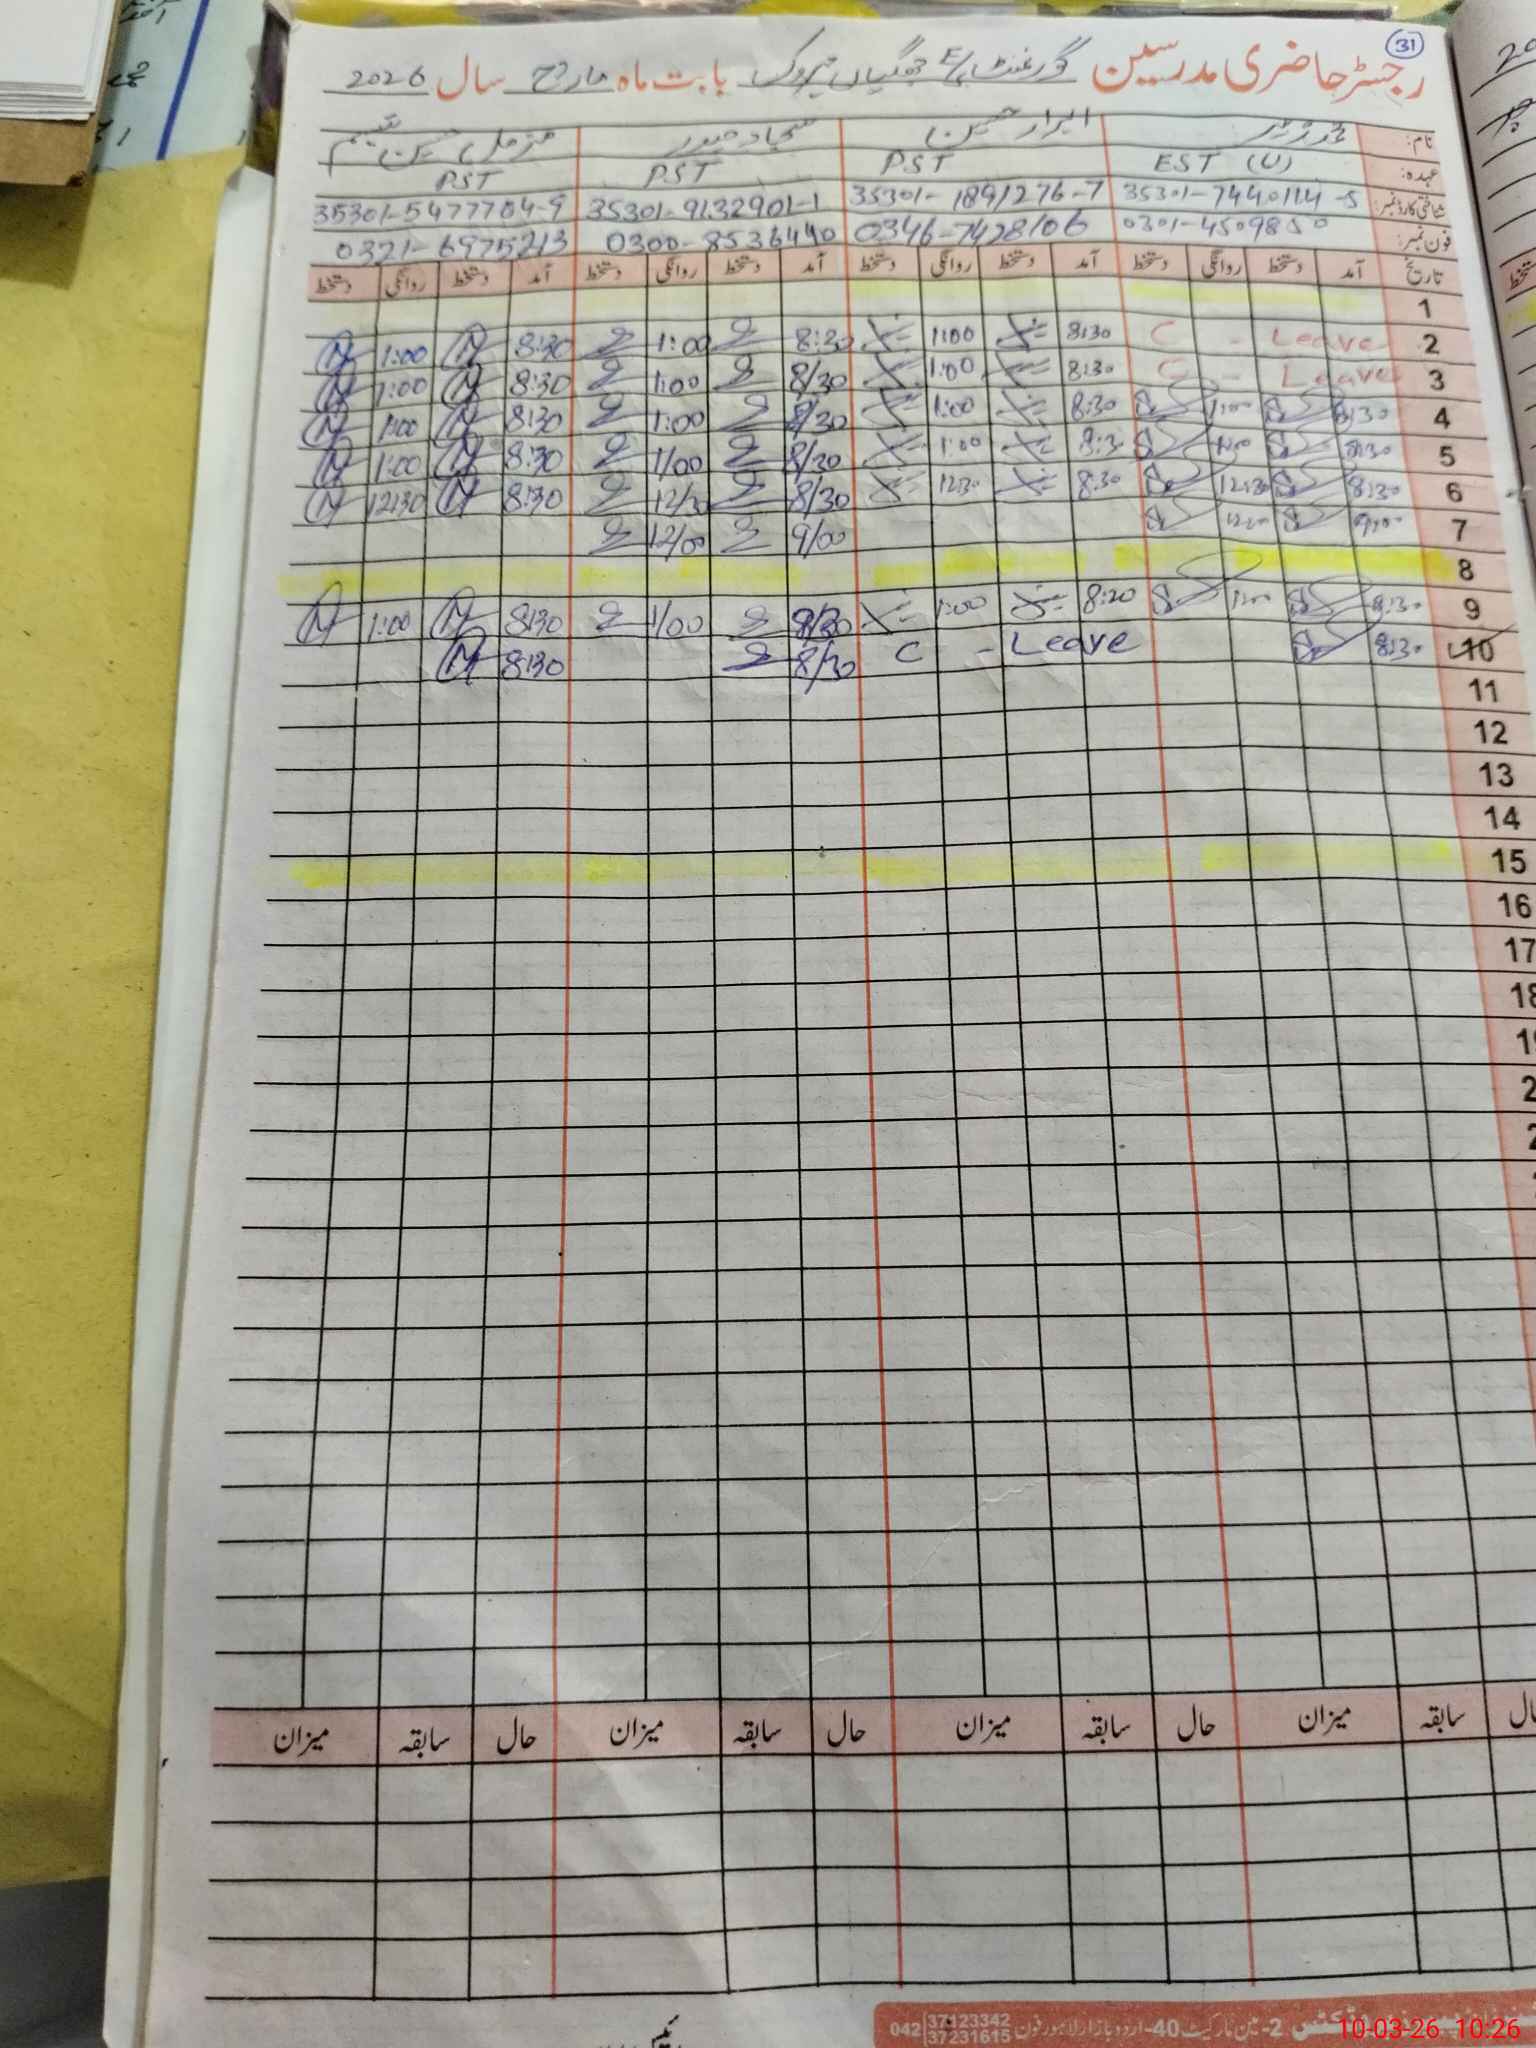 31
رجسٹر حاضری مدرسین گورنمنٹ E/S جھگیاں بابت ماہ مارچ سال 2026
نام: ابرار حسین سجاد حیدر مزمل حسین
عہدہ: EST (U) PST PST PST
شناختی کارڈ نمبر: 35301-7440114-5 35301-1891276-7 35301-9132901-1 35301-5477704-9
فون نمبر: 0301-4509850 0346-7428106 0300-8536440 0321-6975213
تاریخ آمد دستخط روانگی دستخط آمد دستخط روانگی دستخط آمد دستخط روانگی دستخط آمد دستخط روانگی دستخط
1
2 C - Leave 8:30 1:00 8:30 1:00 8:30 1:00
3 C - Leave 8:30 1:00 8/30 1:00 8:30 1:00
4 8:30 1:00 8:30 1:00 8/30 1:00 8:30 1:00
5 8:30 1:00 8:30 1:00 8/30 1/00 8:30 1:00
6 8:30 12:30 8:30 12:30 8/30 12/30 8:30 12:30
7 9:00 12:00 9/00 12/00
8
9 8:30 1:00 8:20 1:00 8/30 1/00 8:30 1:00
10 8:30 C - Leave 8/30 8:30
11
12
13
14
15
16
17
18
حال سابقہ میزان حال سابقہ میزان حال سابقہ میزان حال سابقہ میزان
2-مین مارکیٹ 40-اردو بازار لاہور فون 042 37123342 37231615
10-03-26 10:26